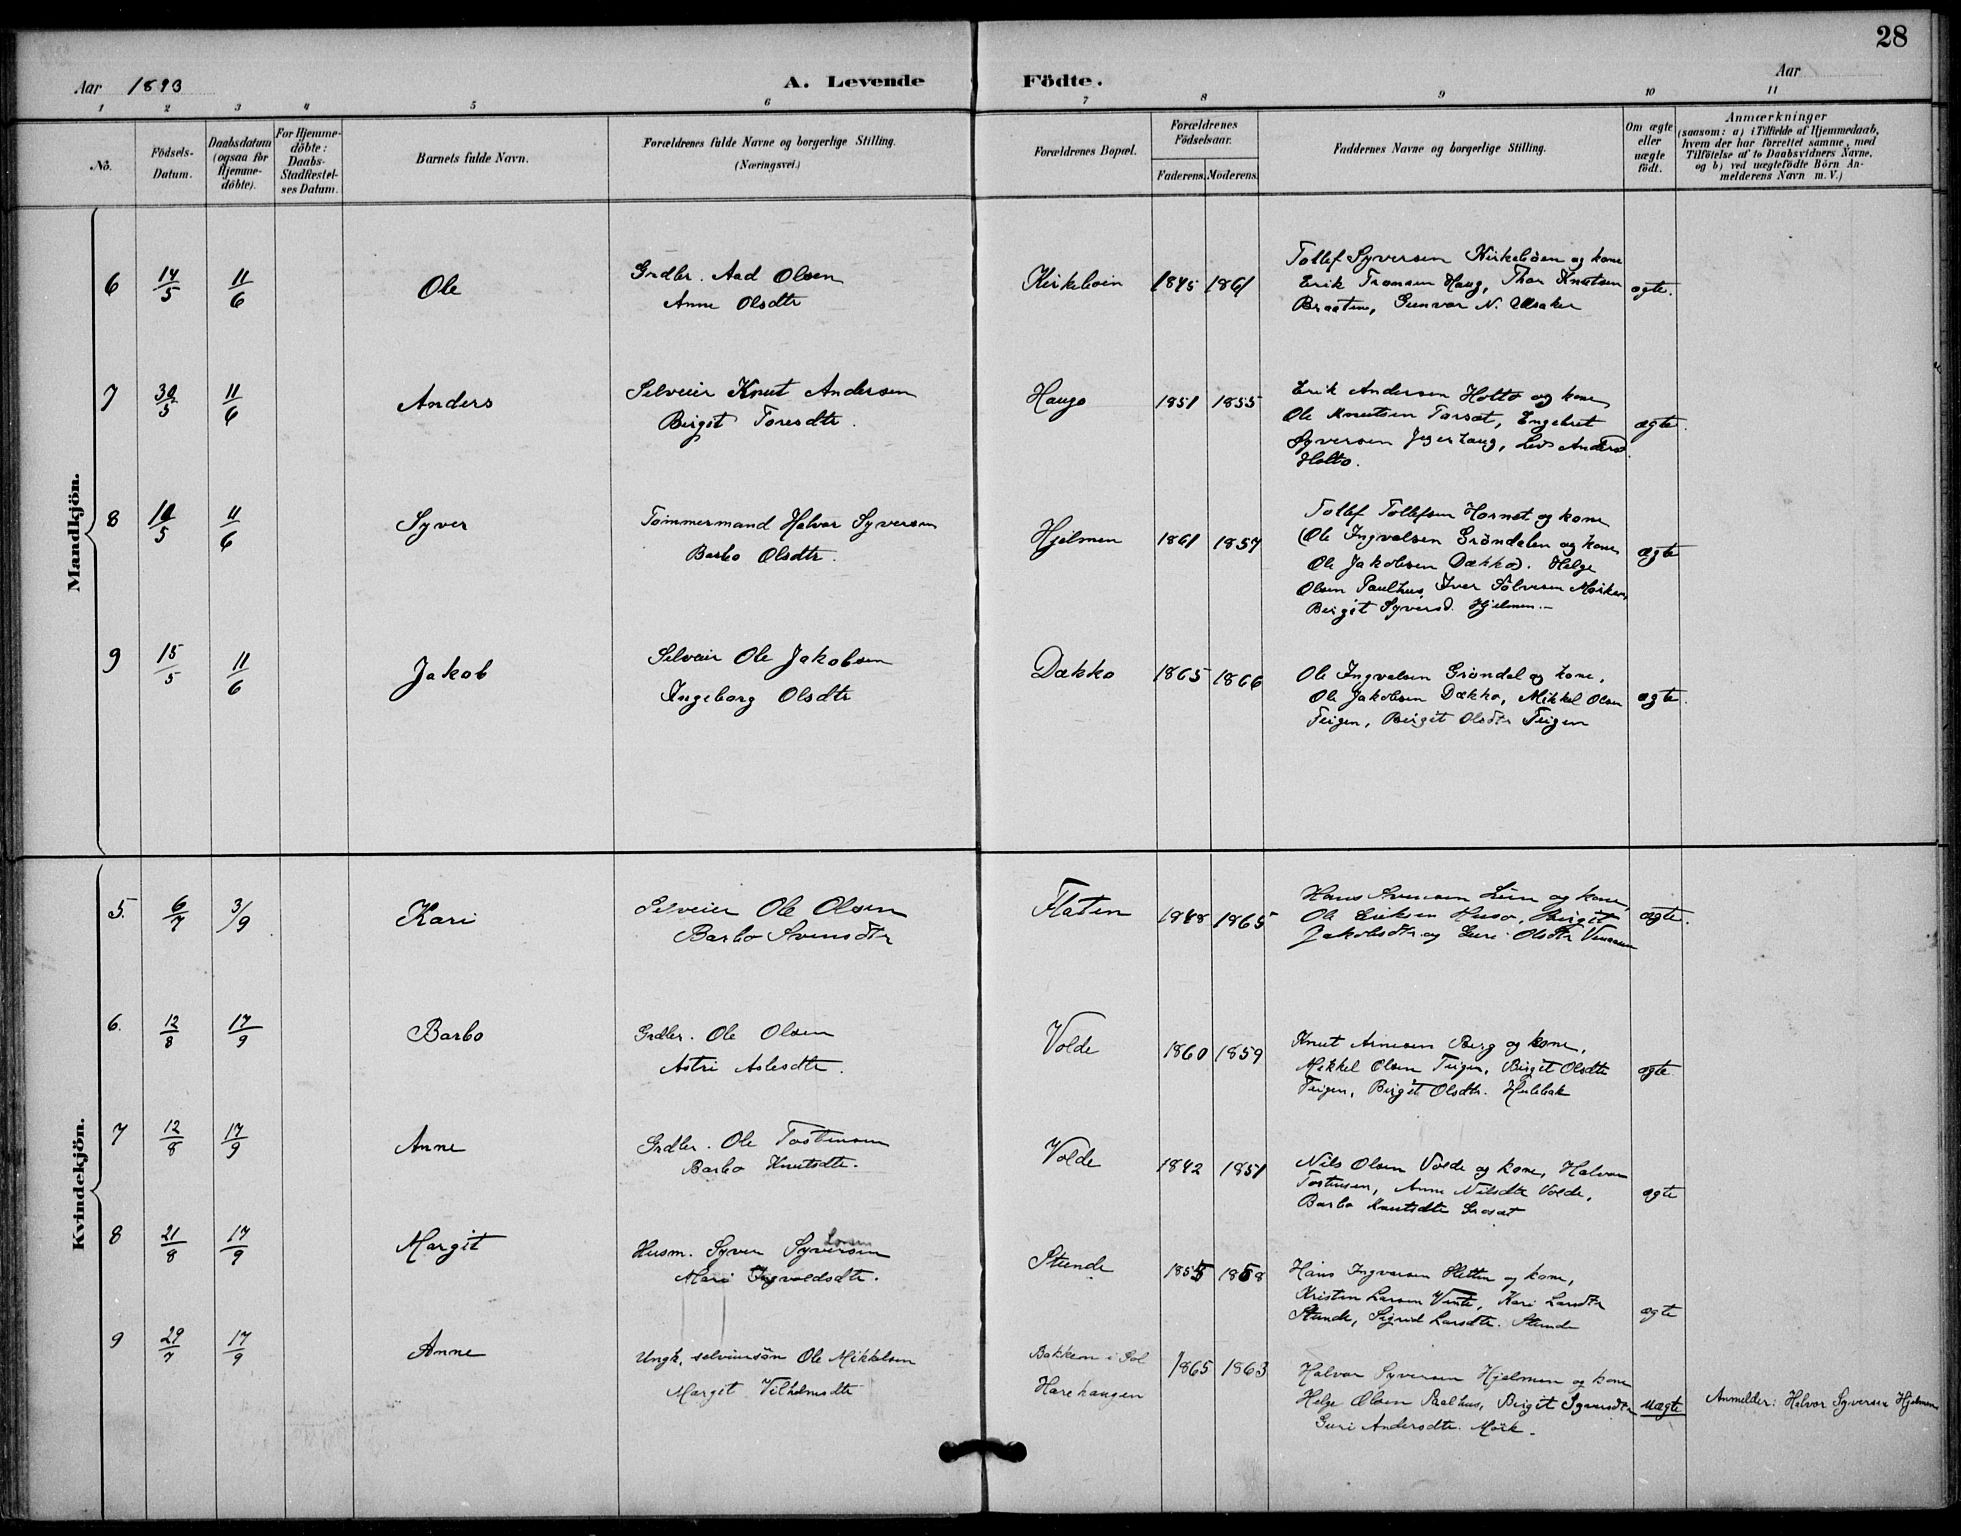 28
Aar 1893
A. Levende Födte.
Aar
1 2 3 4 5 6 7 8 9 10 11
No.
Födsels-Datum.
Daabsdatum (ogsaa for Hjemmedöbte).
For Hjemmedöbte: Daabs-Stadfæstelses Datum.
Barnets fulde Navn.
Forældrenes fulde Navne og borgerlige Stilling. (Næringsvei.)
Forældrenes Bopæl.
Forældrenes Födselsaar.
Faderens. Moderens.
Faddernes Navne og borgerlige Stilling.
Om ægte eller uægte födt.
Anmærkninger
(saasom: a) i Tilfælde af Hjemmedaab, hvem der har forrettet samme, med Tilföielse af to Daabsvidners Navne, og b) ved uægtefödte Börn Anmelderens Navn m. V.)
Mandkjön.
6 14/5 11/6 Ole
Grdbr. Aad Olsen
Anne Olsdtr
Kirkeböin 1845 1861
Tollef Syversen Kirkeböen og kone
Erik Tronsen Haug, Thor Knutsen
Braaten, Gunvor N.
ægte.
7 30/5 11/6 Anders
Selveier Knut Andersen
Birgit Toresdtr.
Haugo 1851 1855
Erik Andersen Holto og kone,
Ole Knutsen Torset, Engebret
Syversen Jegerhaug, Anders
Holto.
ægte.
8 10/5 11/6 Syver
Tömmermand Halvor Syversen
Barbo Olsdtr.
Hjelmen 1861 1857
Tollef Tollefsen Hornset og kone
(Ole Ingvalsen Gröndalen og kone,
Ole Jakobsen Dækko). Helge
Olsen Paulhus, Iver Sölvesen Mörken,
Birgit Syversd. Hjelmen.-
ægte
9 15/5 11/6 Jakob
Selveier Ole Jakobsen
Ingeborg Olsdtr
Dækko 1865 1866
Ole Ingvalsen Gröndal og kone,
Ole Jakobsen Dækko, Mikkel Olsen
Teigen, Birgit Olsdtr Teigen
ægte.
Kvindekjön.
5. 6/7 3/9 Kari
Selveier Ole Olsen
Barbo Svensdtr
Flaten 1848 1865
Hans Svensen Lien og kone,
Ole Eriksen Huso, Birgit
Jakobsdtr og Guri Olsdtr
ægte.
6. 12/8 17/9 Barbo
Grdbr. Ole Olsen
Astri Aslesdtr.
Volde 1860 1859
Knut Arnesen Berg og kone,
Mikkel Olsen Teigen, Birgit Olsdtr
Teigen, Birgit Olsdtr. Hulebak
ægte.
7 12/8 17/9 Anne
Grdbr. Ole Tostensen
Barbo Knutsdtr.
Volde 1842 1851
Nils Olsen Volde og kone, Halvor
Tostensen, Anne Nilsdtr Volde,
Barbo Knutsdtr Groset
ægte
8 21/8 17/9 Margit
Larsen
Husm. Syver Syversen
Mari Ingvoldsdtr.
Stunde 1855 1858
Hans Ingvarsen Sletten og kone,
Kristen Larsen, Kari Larsdtr
Stunde, Sigrid Larsdtr. Stunde
ægte
9 29/7 17/9 Anne
Ungk. selveiersön Ole Mikkelsen
Margit Vilhelmsdtr
Bakken i Gol
Harehaugen
1865 1863
Halvor Syversen Hjelmen og kone
Helge Olsen Paalhus, Birgit Syversdtr
Guri Andersdtr. Mörk.
uægte
Anmelder: Halvor Syversen Hjelmen